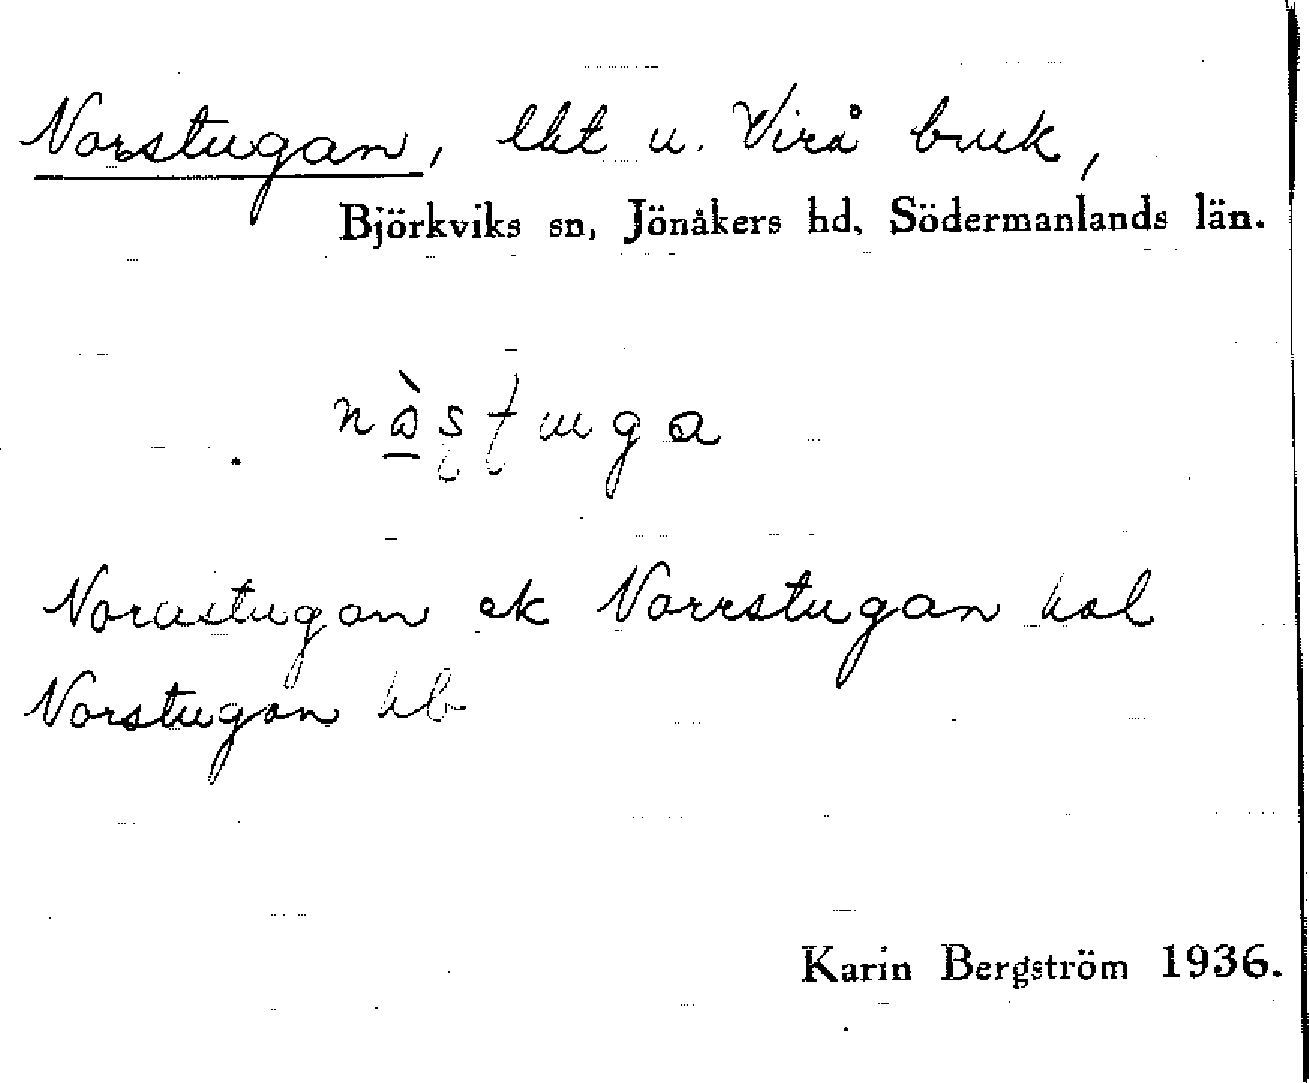 Norstugan, lht u. Virå bruk,
Björkviks sn, Jönåkers hd, Södermanlands län.
Norrstugan ek Norrstugan hal
Norstugan hb
Karin Bergström 1936.